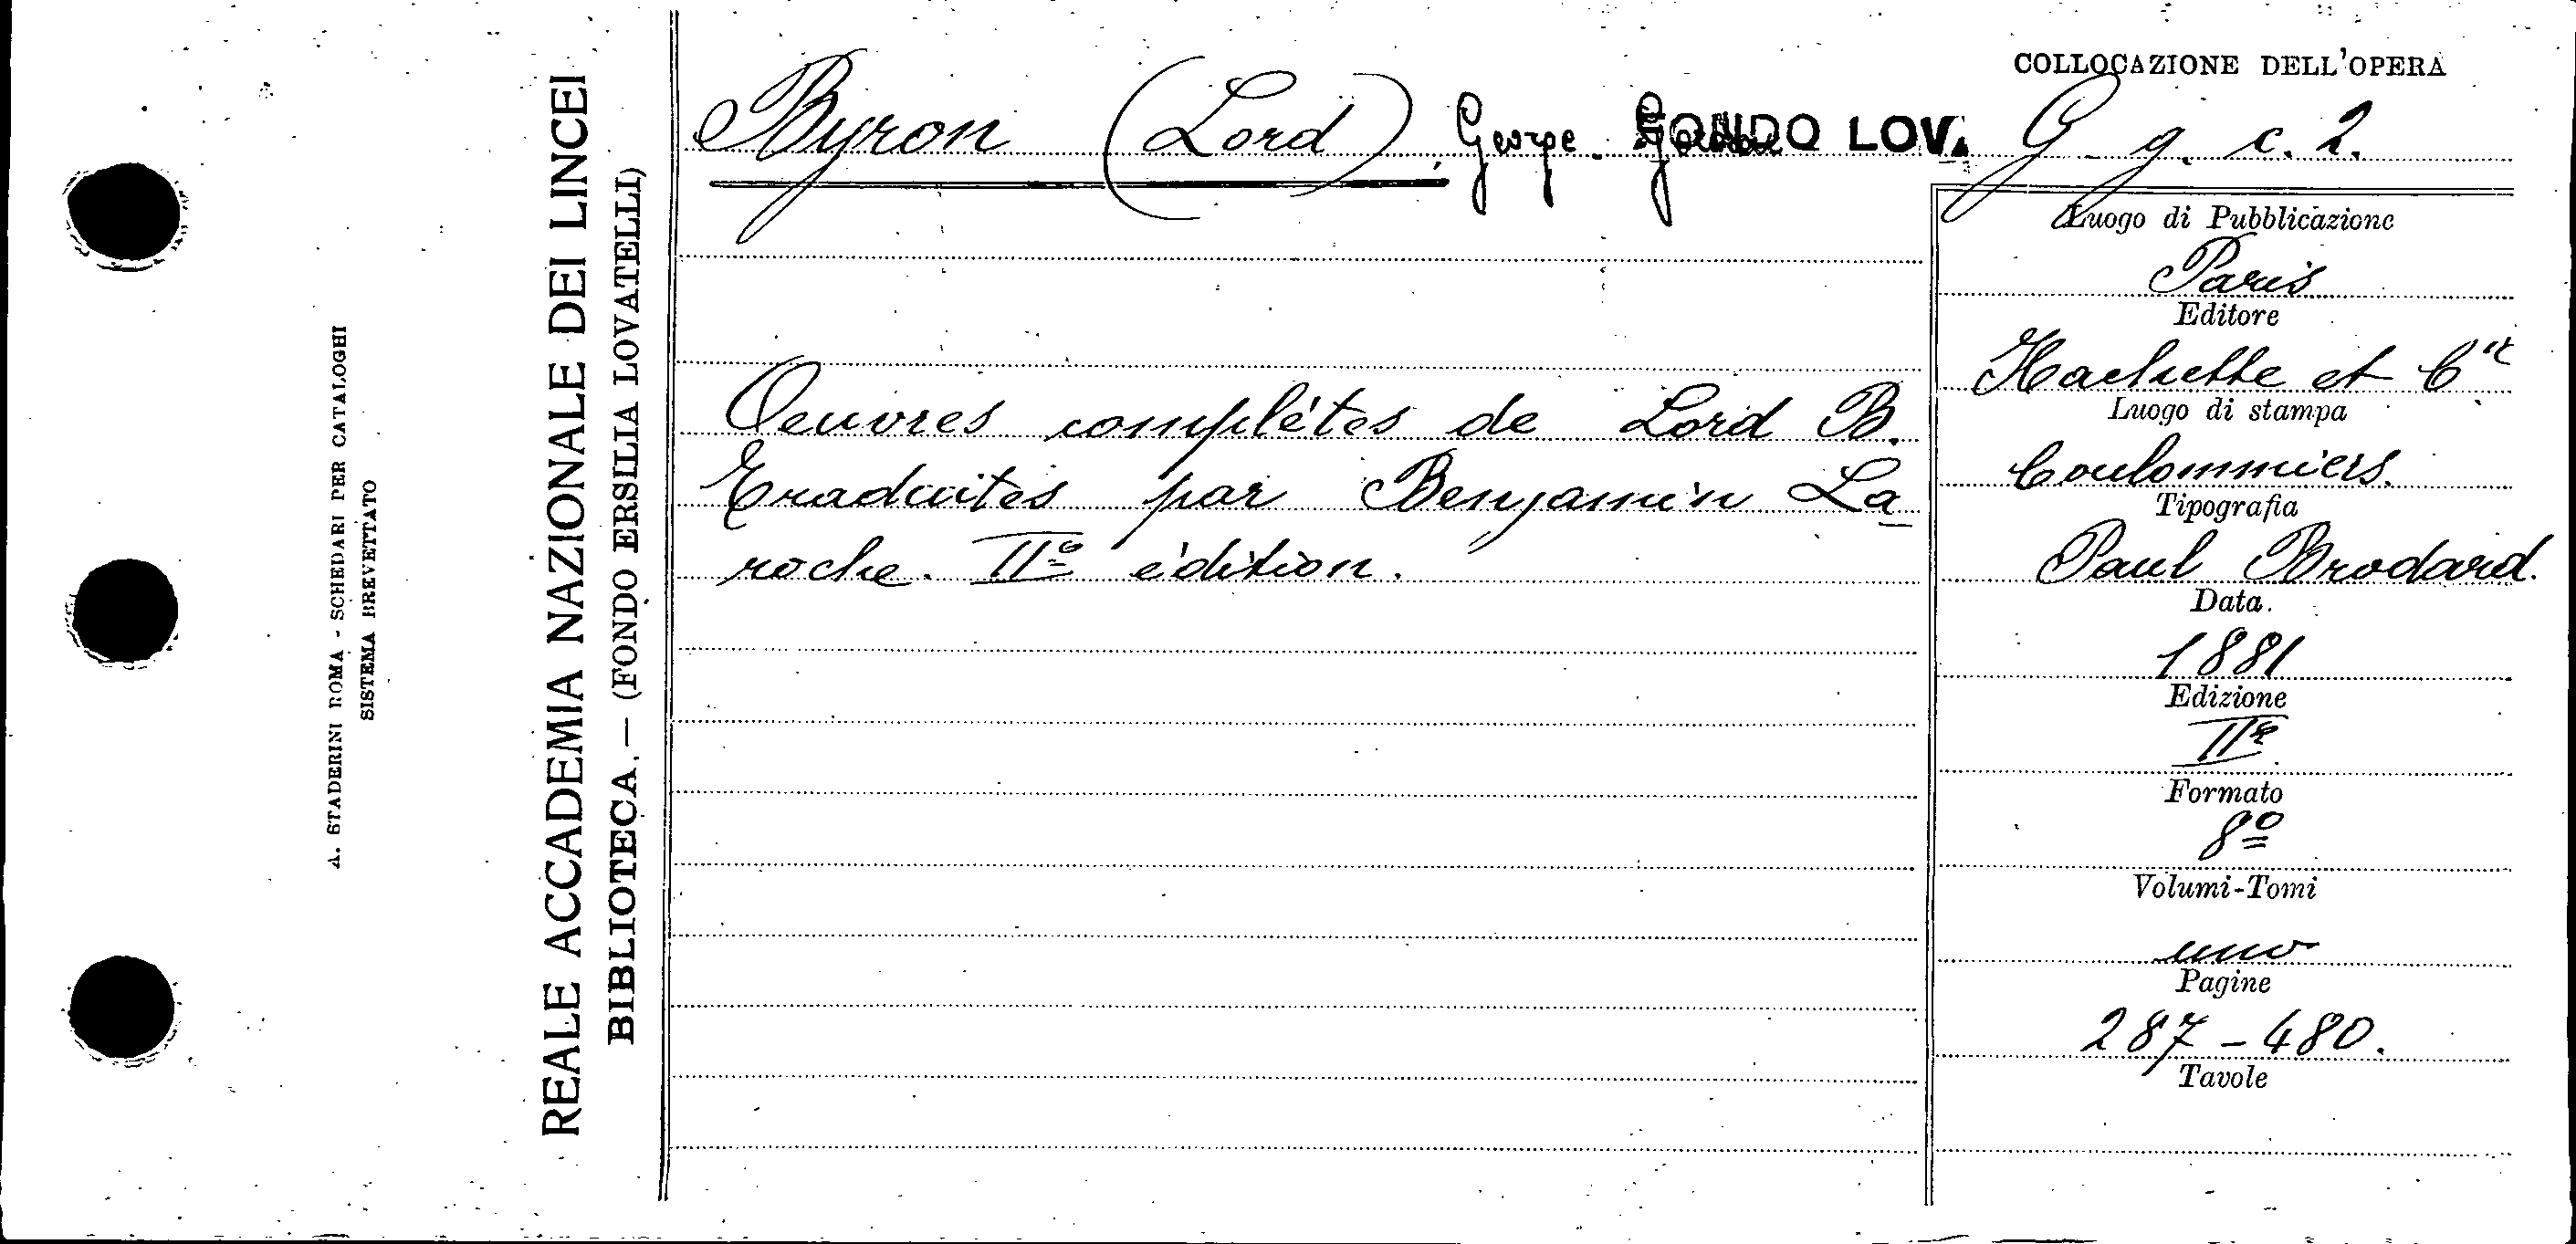 A. STADERINI ROMA - SCHEDARI PER CATALOGHI
SISTEMA BREVETTATO
REALE ACCADEMIA NAZIONALE DEI LINCEI
BIBLIOTECA. — (FONDO ERSILIA LOVATELLI)
Byron (Lord), George FONDO LOV.
Oeuvres complètes de Lord B.
Traduites par Benjamin La
roche. IIe édition.
COLLOCAZIONE DELL'OPERA
G. g. c. 2.
Luogo di Pubblicazione
Paris
Editore
Hachette et Cie
Luogo di stampa
Coulommiers.
Tipografia
Paul Brodard.
Data.
1881
Edizione
IIa
Formato
8º
Volumi-Tomi
uno
Pagine
287-480.
Tavole